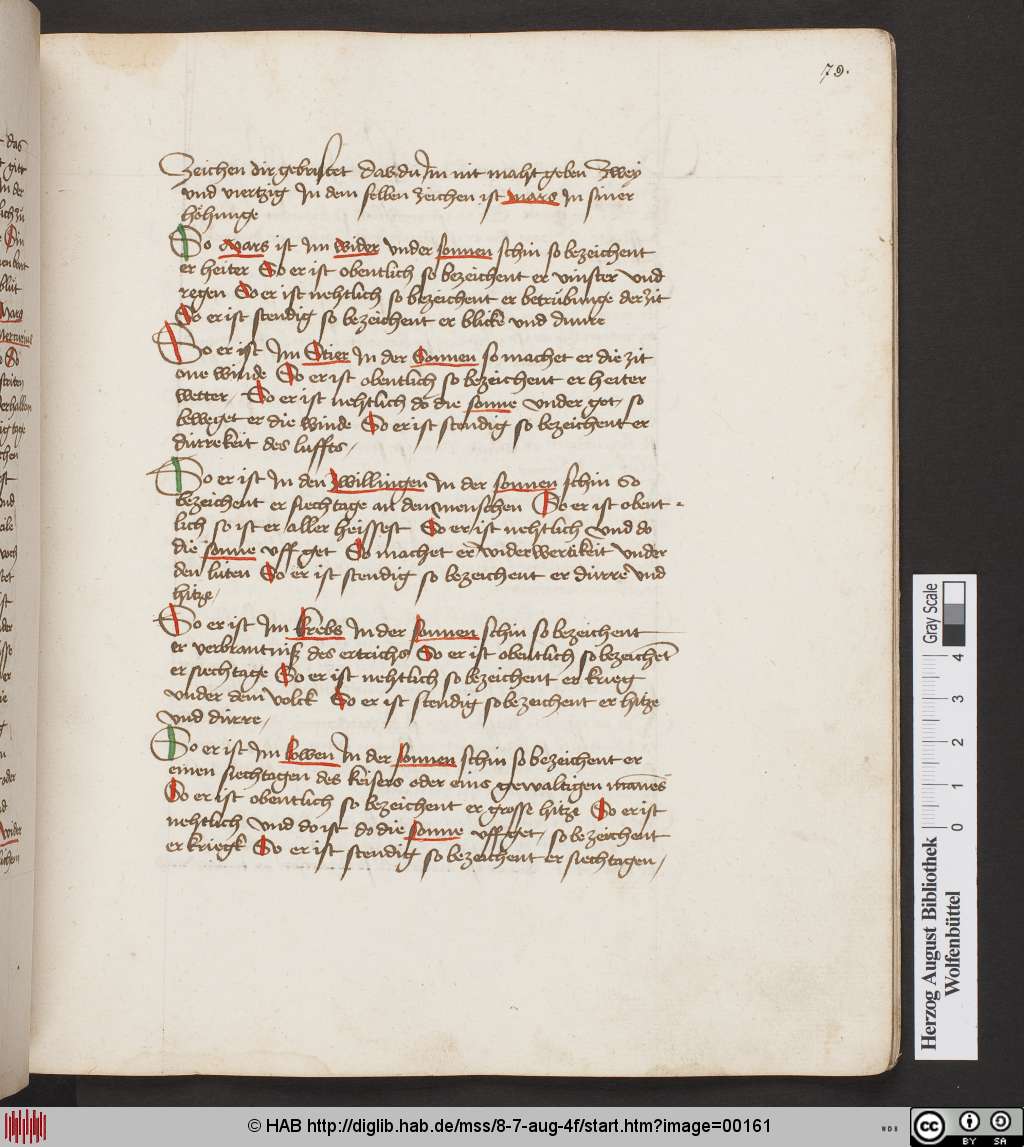 79.
Zeichen dir gebristet das du Im nit maht geben Zwey
und viertzig In dem selben zeichen ist mars In siner
höhunge
So mars ist Im wider under sonnen schin so bezeichent
er heiter So er ist obentlich so bezeichent er vinster und
regen So er ist nehtlich so bezeichent er betrübunge der zit
So er ist stendig so bezeichent er blicke und dunre
So er ist Im Stier In der Sonnen so machet er die zit
one winde So er ist obentlich so bezeichent er heiter
wetter, So er ist nehtlich do die sonne under get, so
beweget er die winde So er ist stendig so bezeichent er
dürrekeit des luffts,
So er ist In den zwillingen In der sonnen schin So
bezeichent er siechtage an den menschen So er ist obent-
lich so ist er aller heissest So er ist nehtlich und do
die sonne uff get So machet er widerwertikeit under
den lüten So er ist stendig so bezeichent er dürre und
hitze,
So er ist Im krebs In der sonnen schin so bezeichent
er verbrantniß des ertrichs So er ist obentlich so bezeichet
er siechtage So er ist nehtlich so bezeichent er krieg
under dem volck So er ist stendig so bezeichent er hitze
und dürre,
So er ist Im lowen In der sonnen schin so bezeichent er
einen siechtagen des keisers oder eins gewaltigen manes
So er ist obentlich so bezeichent er grosse hitze So er ist
nehtlich und do ist do die sonne uff get, so bezeichent
er kriegk So er ist stendig so bezeichent er siechtagen,
Gray Scale
0 1 2 3 4
Herzog August Bibliothek
Wolfenbüttel
© HAB http://diglib.hab.de/mss/8-7-aug-4f/start.htm?image=00161
WDB
cc BY SA